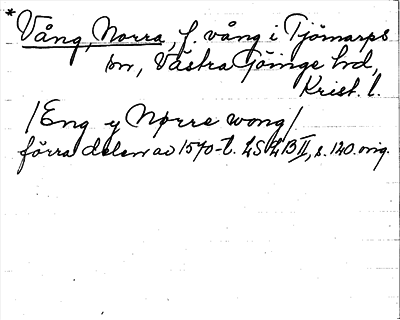 * Vång, Norra, f. vång i Tjörnarps
sn, Västra Göinge hd,
Krist. l.
/Eng y Nørre wong/
förra delen av 1570-t. LSLB II, s. 120. orig.